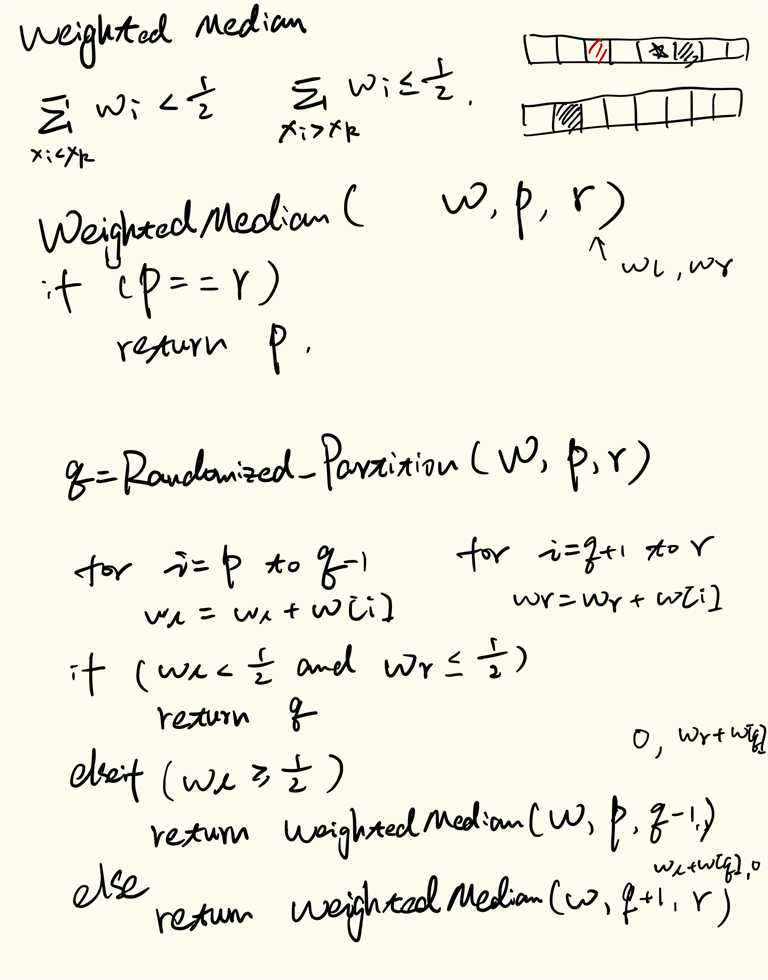 Weighted Median
∑ wi < 1/2   ∑ wi ≤ 1/2 .
xi<xk   xi>xk
Weighted Median (   w, p, r)
↑ wl, wr
if (p == r)
return p .
q = Randomized_Partition (W, p, r)
for i = p to q-1   for i = q+1 to r
wl = wl + w[i]   wr = wr + w[i]
if (wl < 1/2 and wr ≤ 1/2)
return q
0, wr + w[q]
elseif (wl ≥ 1/2)
return Weighted Median (W, p, q-1,)
wl+w[q],0
else
return Weighted Median (w, q+1, r)